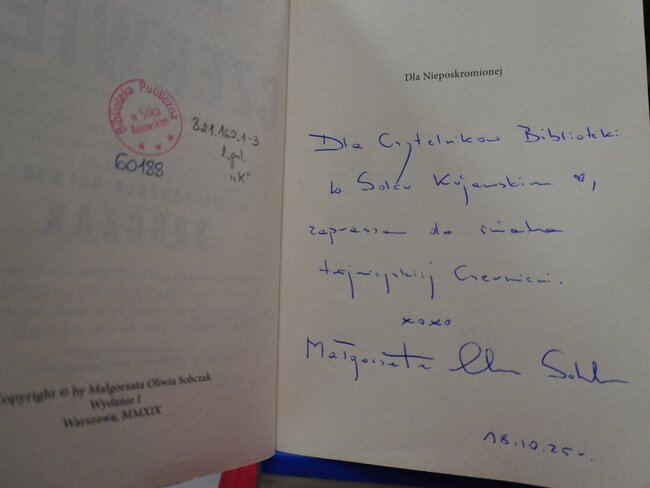 Biblioteka Publiczna
w Solcu
Kujawskim
60188
821.162.1-3
l.pol.
"K"
SOBCZAK
Copyright © by Małgorzata Oliwia Sobczak
Wydanie I
Warszawa, MMXIX
Dla Nieposkromionej
Dla Czytelników Biblioteki
w Solcu Kujawskim ♥,
zapraszam do świata
tajemniczej Czerwieni.
xoxo
Małgorzata Oliwia Sobczak
18.10.25 r.